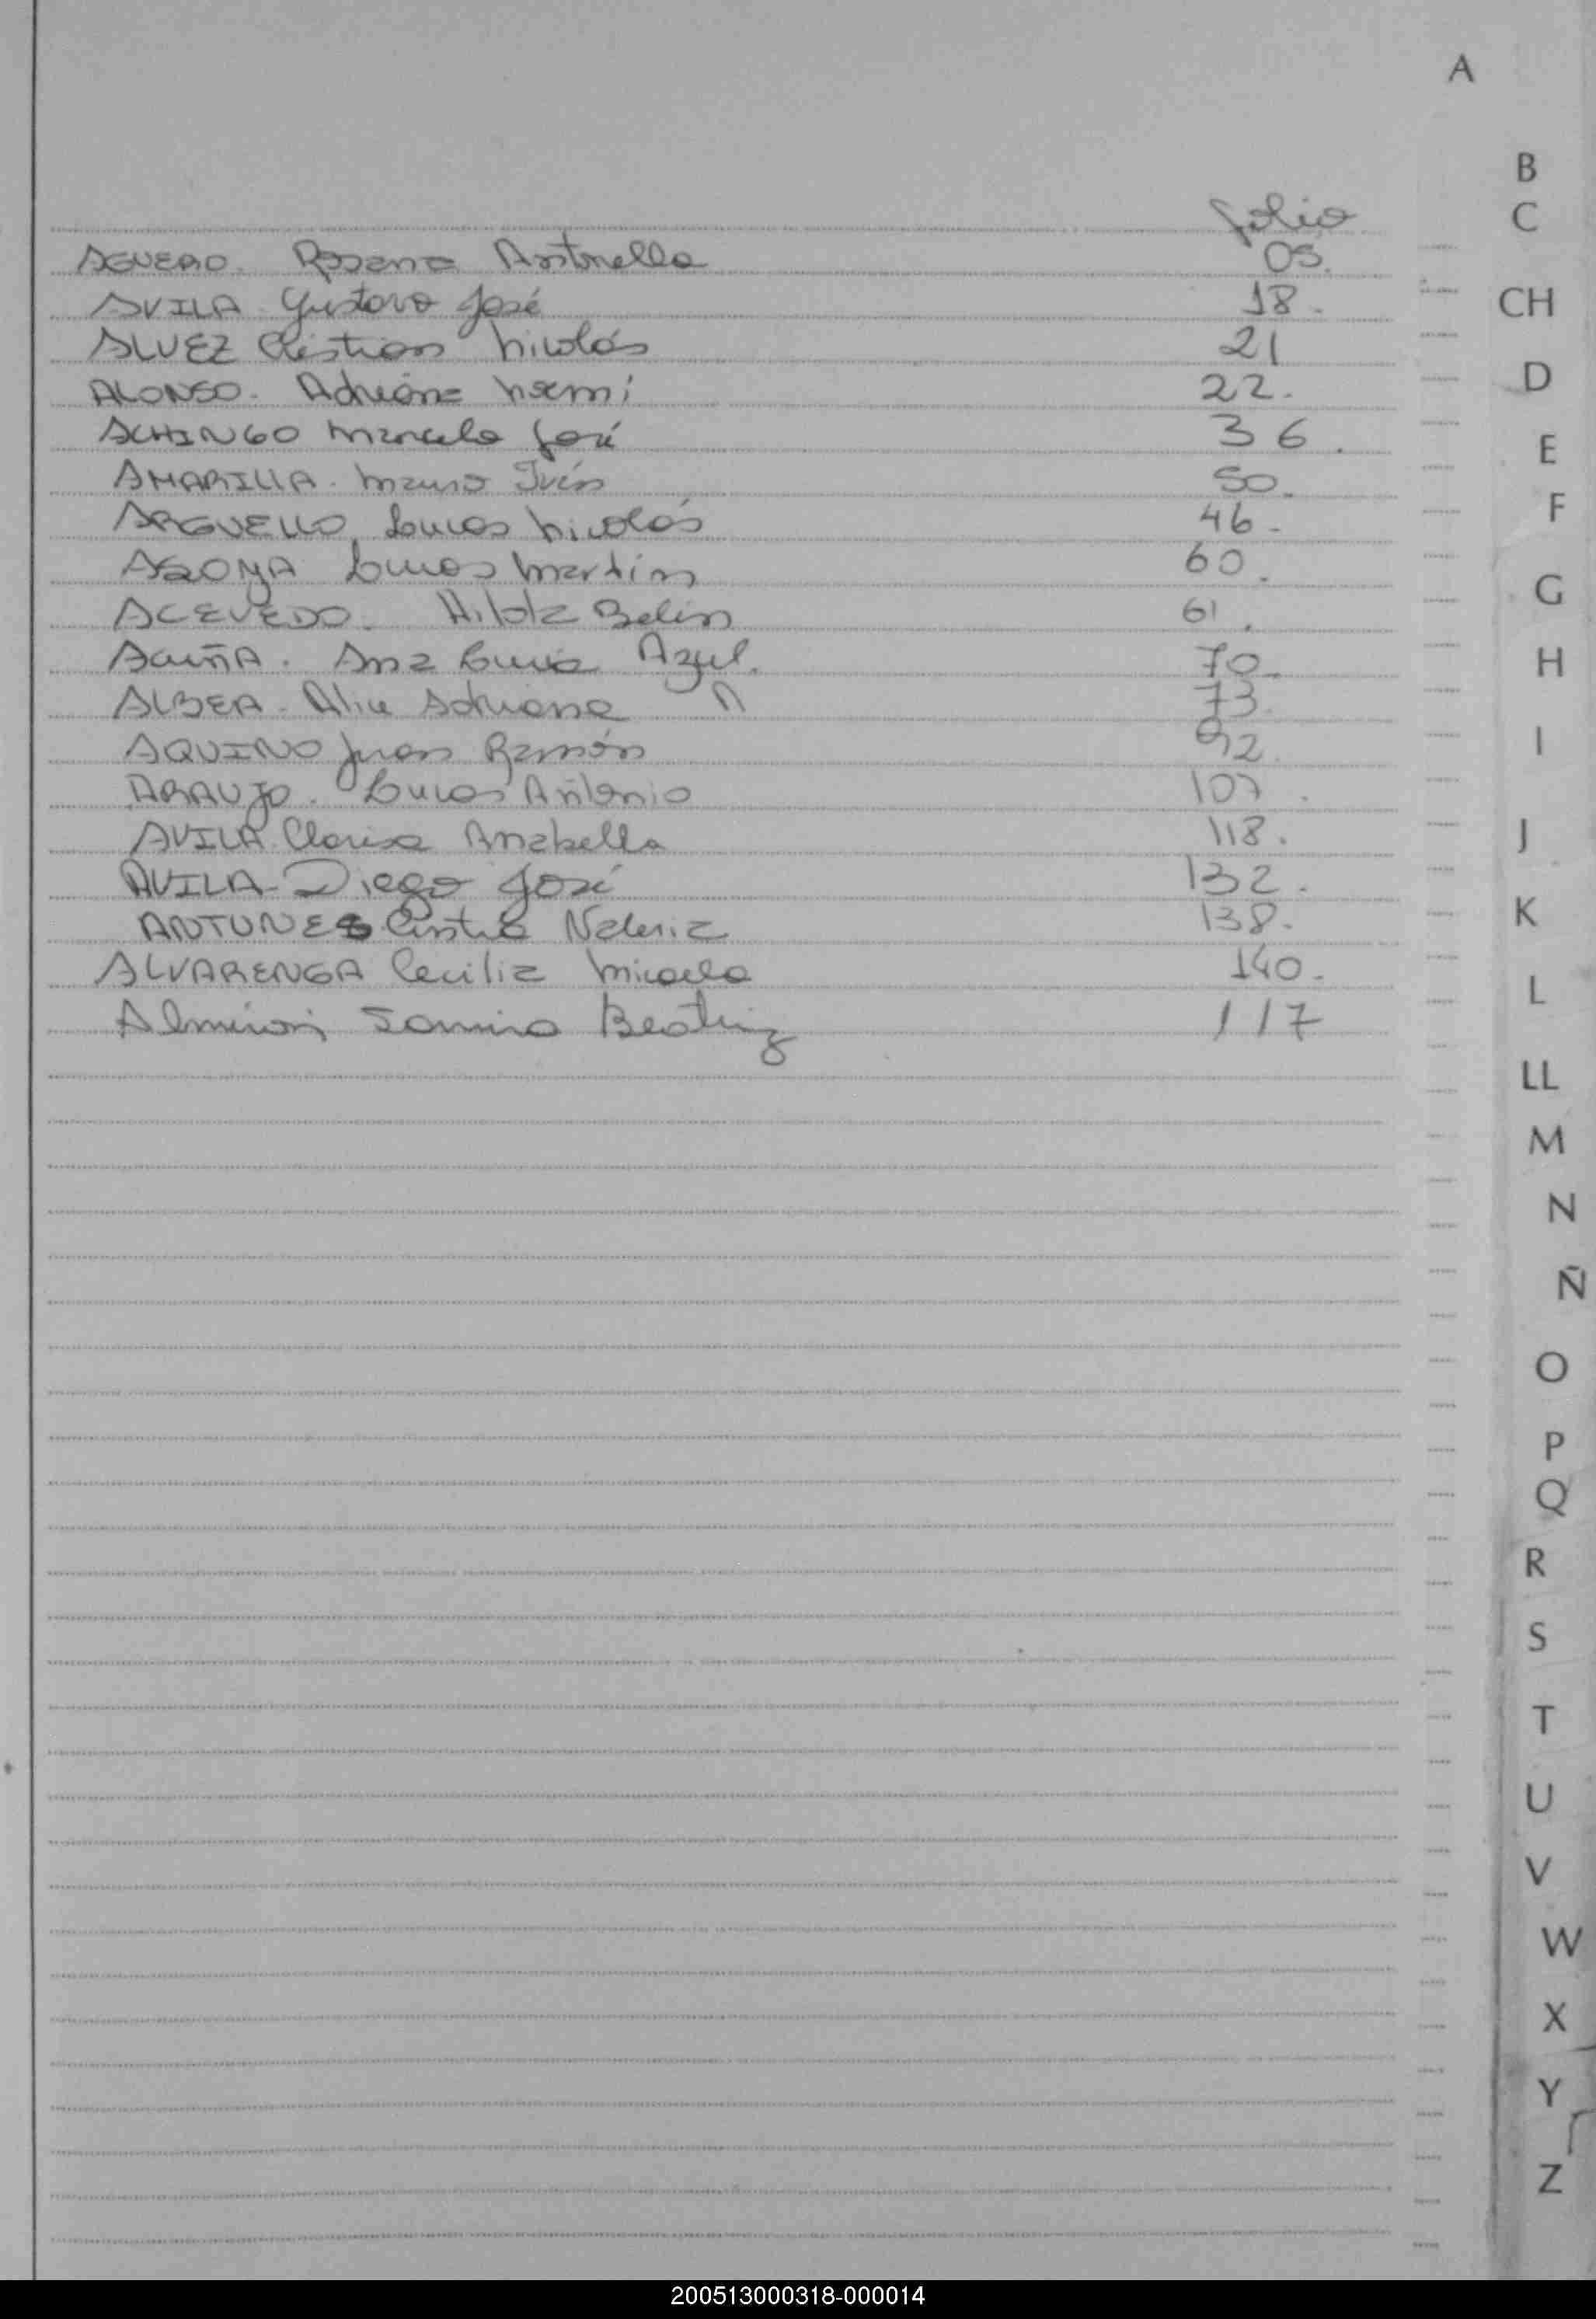 A
B
C
folio
AGUERO. Rosana Antonella 05.
CH
AVILA - Gustavo José 18.
ALVEZ Cristian Nicolás 21
D
ALONSO. Adriana Noemi 22.
ACHINGO Marcelo José 36.
E
AMARILLA - Mauro Iván 50.
F
ARGUELLO, Lucas Nicolás 46.
Lucas Martín 60.
G
ACEVEDO. Hilda Belén 61.
ACUÑA. Ana Lucia Azul. 70.
H
ALBER - Adriana 73.
AQUINO Juan Ramón 92.
I
ARAUJO. Lucas Antonio 107.
AVILA Clarisa Anabella 118.
J
AVILA - Diego José 132.
K
ANTUNES Valeria 138.
ALVARENGA Cecilia Micaela 140.
L
Almirón Beatriz 117
LL
M
N
Ñ
O
P
Q
R
S
T
U
V
W
X
Y
Z
200513000318-000014